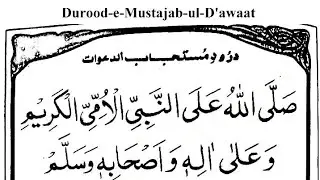 Durood-e-Mustajab-ul-D'awaat
درودِ مُستحبابُ الدعوات
صَلَّى اللهُ عَلَى النَّبِيِّ الْاُمِّيِّ الْكَرِيْمِ
وَعَلٰى اٰلِهٖ وَاَصْحَابِهٖ وَسَلَّمْ